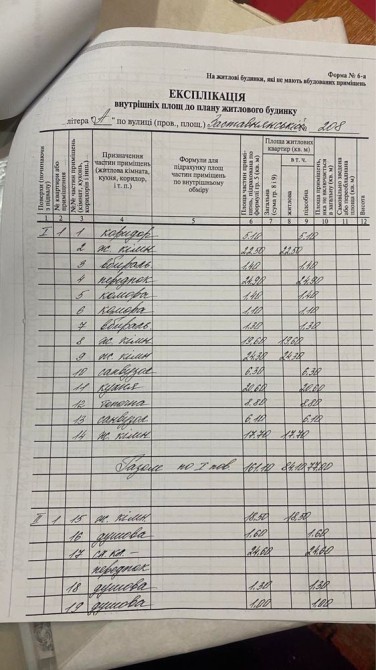 Форма № 6-а
На житлові будинки, які не мають вбудованих приміщень
ЕКСПЛІКАЦІЯ
внутрішніх площ до плану житлового будинку
літера "А" по вулиці (пров., площ.) 208
Поверхи (починаючи з підвалу)
№ квартири або приміщення
№№ частин приміщень (кімнат, кухонь, коридорів і інш.)
Призначення частин приміщень (житлова кімната, кухня, коридор, і т. п.)
Формули для підрахунку площ частин приміщень по внутрішньому обміру
Загальна (сума гр. 8 і 9)
Площа житлових квартир (кв. м)
в т. ч.
житлова
підсобна
Висота
1 2 3 4 5 6 7 8 9 10 11 12
I 1 1 коридор 5.10 5.10
2 ж. кімн 22.50 22.50
3 вбираль 1.40 1.40
4 передпок 24.90 24.90
5 комора 1.40 1.40
6 комора 1.10 1.10
7 вбираль 1.30 1.30
8 ж. кімн 19.60 19.60
9 ж. кімн 24.30 24.30
10 санвузол 6.30 6.30
11 кухня 20.60 20.60
12 топочна 8.80 8.80
13 санвузол 6.10 6.10
14 ж. кімн 17.70 17.70
Разом по I пов. 161.10 84.10 77.00
II 1 15 ж. кімн. 18.50 18.50
16 душова 1.60 1.60
17 24.60 24.60
передпок
18 душова 1.30 1.30
19 душова 1.00 1.00